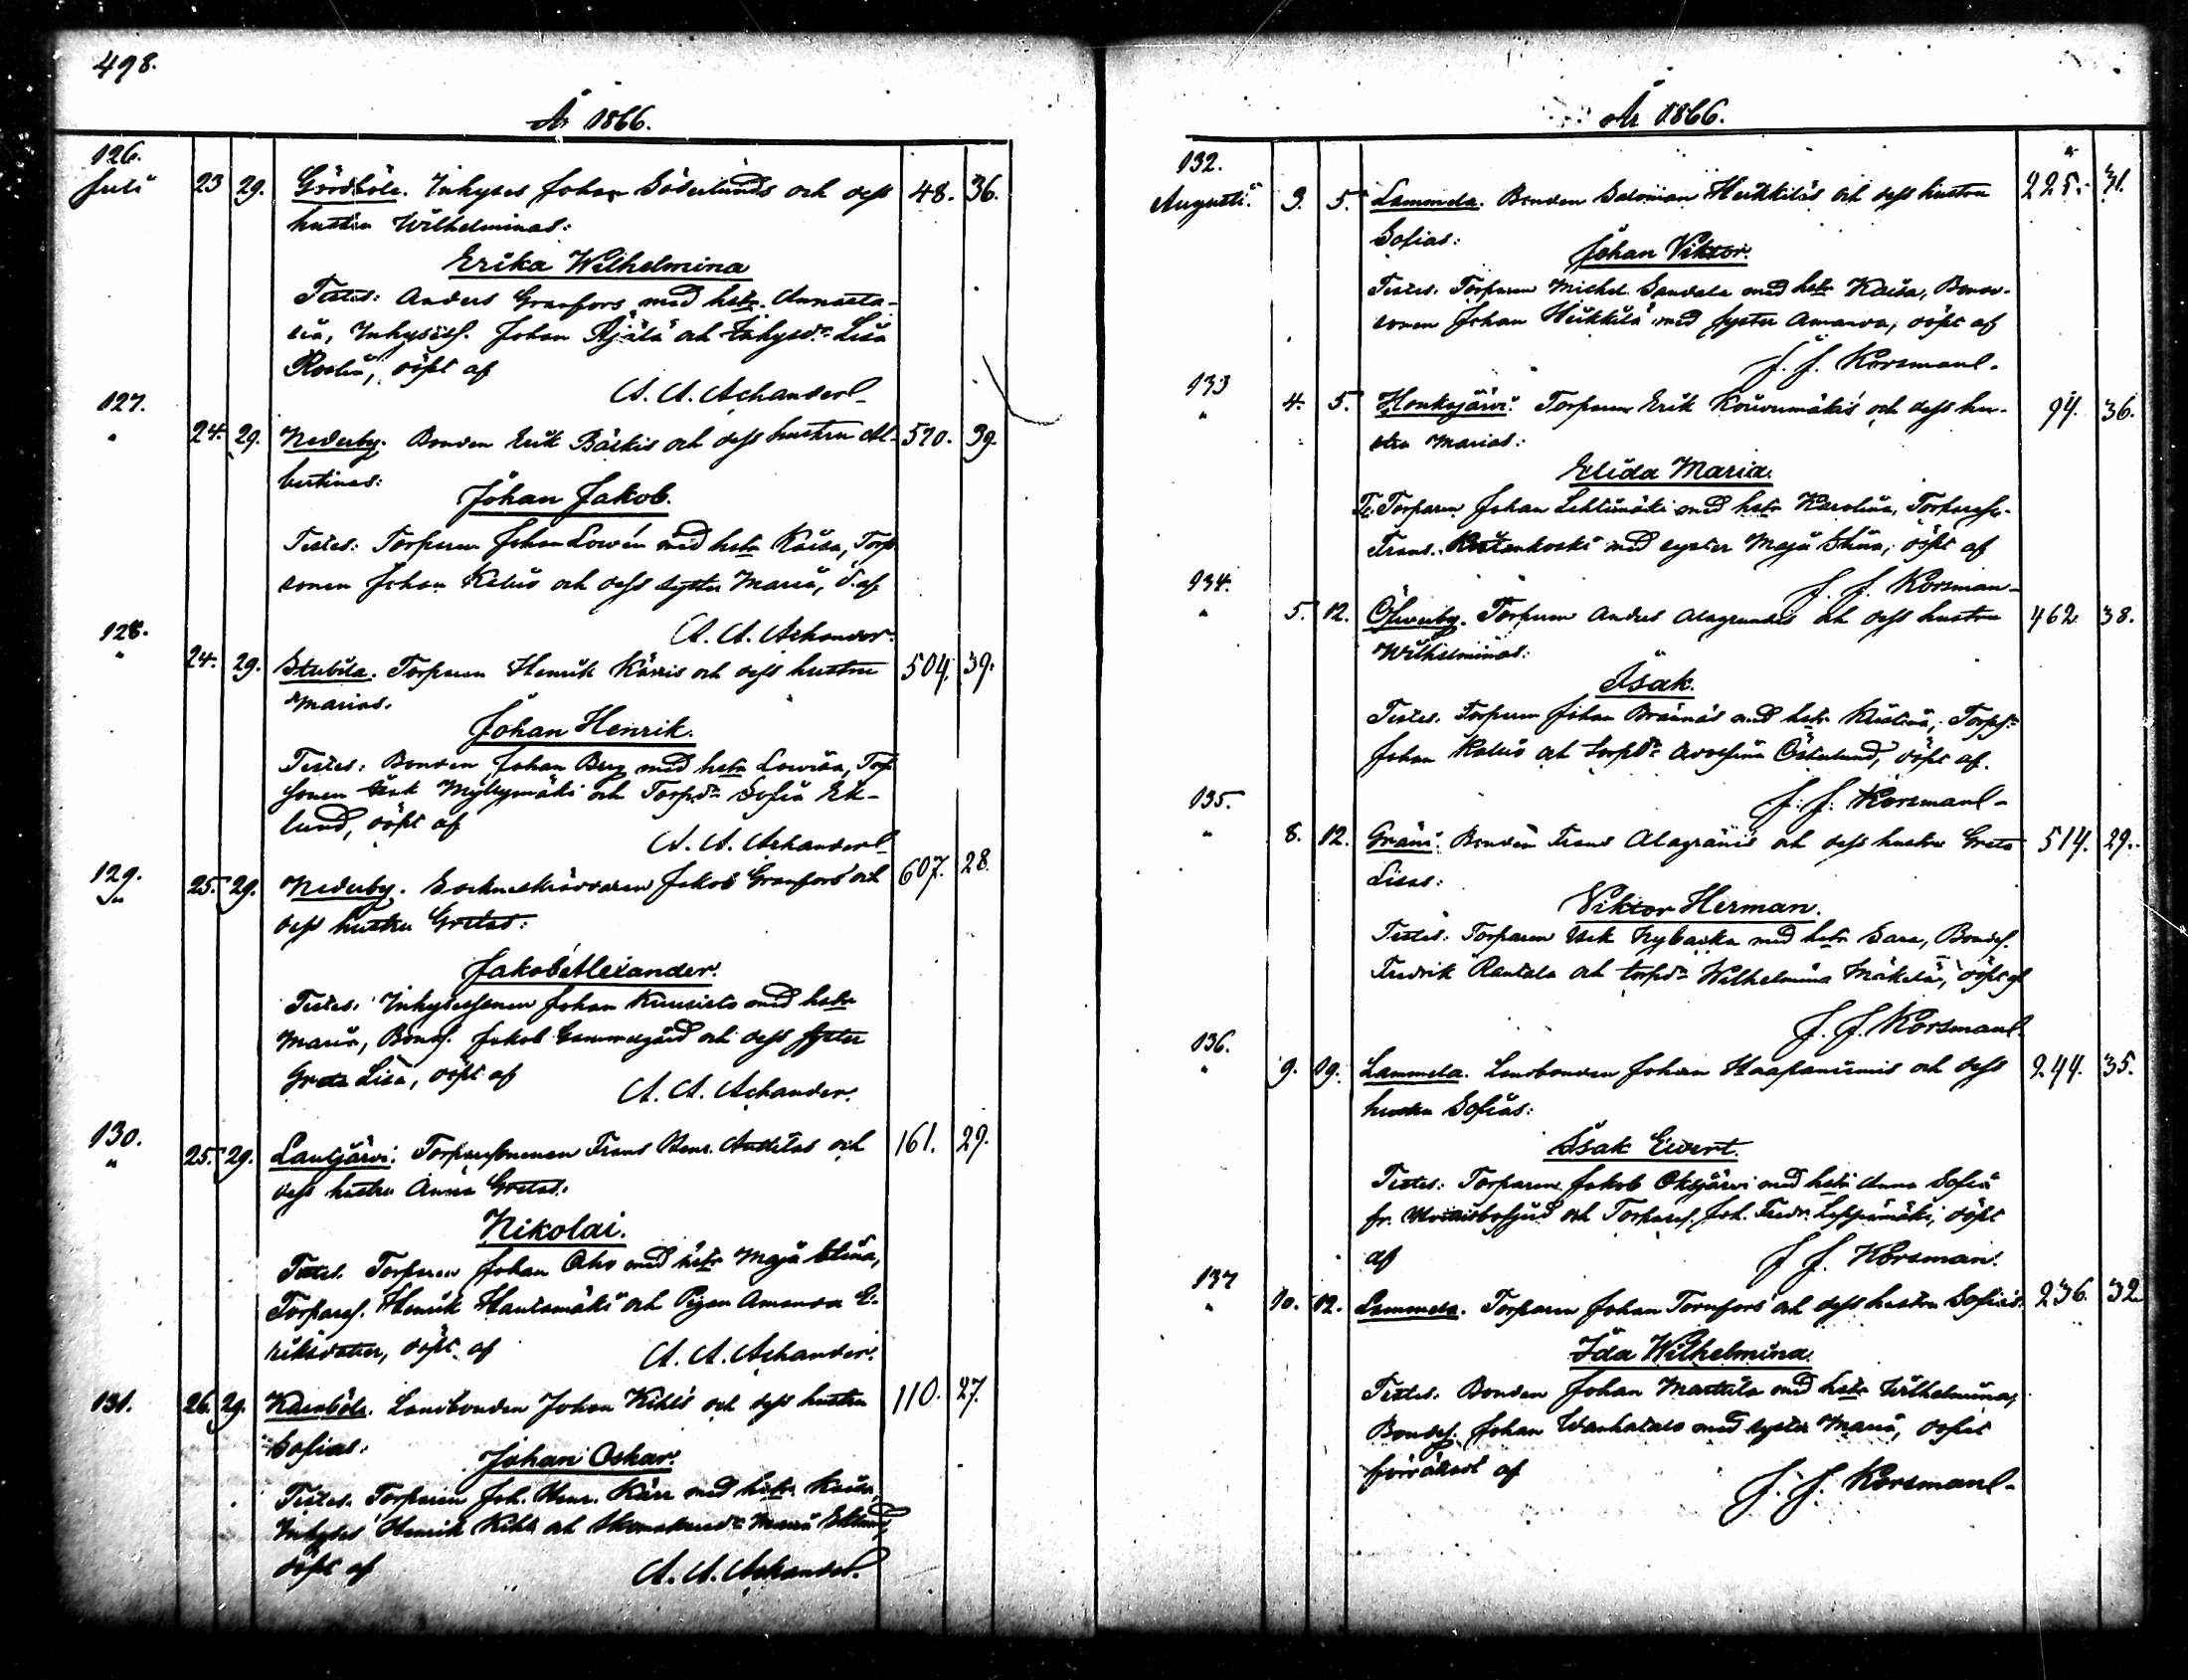 498.
År 1866.
126.
Juli 23 29. Gördböle. Inhyses Johan Söderlunds och dess 48. 36.
hustru Wilhelminas:
Erika Wilhelmina
Testes: Anders Granfors med hstr. Annasta-
sia, Johan Äjälä och Lisa
döpt af
A. A. Achander
127.
" 24. 29. Nederby. Bonden Erik Bäckis och dess hustru Al- 570. 39
bertinas:
Johan Jakob.
Testes: Torparen Johan Lowén med hstr Kaisa, Torp
sonen Johan och dess syster Maria, d. af
A. A. Achander.
128.
" 24. 29. Stubila. Torparen Henrik Kärris och dess hustru 504. 39.
Marias.
Johan Henrik.
Testes: Bonden Johan Berg med hstr Lowisa, Torp
sonen Isak Myllymäki och Torpdr Sofia Ek-
lund, döpt af
A. A. Achander
129.
25. 29. Nederby. Sockneskräddaren Jakob Granfors och 607. 28.
dess hustru Gretas:
Jakob Alexander.
Testes: Johan Kuusisto med hstr
Maria, Bonds. Jakob Gammelgård och dess syster
Greta Lisa, döpt af
A. A. Achander.
130.
" 25. 29. Lautjärvi. Torparesonen Frans Henr. Anttilas och 161. 29.
dess hustru Anna Gretas:
Nikolai.
Testes. Torparen Johan Oho med hstr Maja Stina,
Torpares. Henrik Hautamäki och Pigan Amanda E-
riksdotter, döpt af
A. A. Achander.
131. 26. 29. Karsböle. Landbonden Johan Kihls och dess hustru 110. 27.
Sofias:
Johan Oskar.
Testes. Torparen Joh. Henr. Kärr med hstr. Kaisa,
Inhyses Henrik Kihl och Maria Eklund,
döpt af
A. A. Achander.
År 1866.
132.
Augusti. 3. 5. Lammela. Bonden Salomon Heikkiläs och dess hustru 225. 31.
Sofias:
Johan Viktor.
Testes. Torparen Michel Sandala med hstr Kaisa, Bonde-
sonen Johan Heikkilä med syster Amanda, döpt af
J. J. Korsman
133
" 4. 5. Honkajärvi. Torparen Erik Koivumäkis och dess hu- 94. 36.
stru Marias:
Elida Maria.
Te. Torparen Johan Lehtimäki med hstr Karolina, Torpares.
Frans. med syster Maja Stina, döpt af
J. J. Korsman
134.
" 5. 12. Öfverby. Torparen Anders Alagrundis och dess hustru 462. 38.
Wilhelminas:
Isak.
Testes. Torparen Johan Brännäs med hstr Kristina, Torps.
Johan och torpdr Österlund, döpt af.
J. J. Korsman
135.
" 8. 12. Gräni. Bonden Frans Alagränis och dess hustru Greta 514. 29.
Lisas:
Viktor Herman.
Testes: Torparen Isak med hstr Sara, Bondes.
Fredrik Rantala och torpdr Wilhelmina Mäkelä, döpt af
J. J. Korsman
136.
" 9. 19. Lammela. Landbonden Johan Haapaniemis och dess 244. 35.
hustru Sofias:
Isak Evert.
Testes: Torparen Jakob Oksjärvi med hstr Anna Sofia
fr. och Torpares. Joh. Fredr. Leppämäki, döpt
af
J. J. Korsman.
137
" 10. 12. Lammela. Torparen Johan Tornfors och dess hustru Sofias. 236. 32.
Ida Wilhelmina.
Testes. Bonden Johan Marttila med hstr Wilhelmina,
Bondes. Johan Wanhatalo med syster Maria, döpt
förrättad af
J. J. Korsman